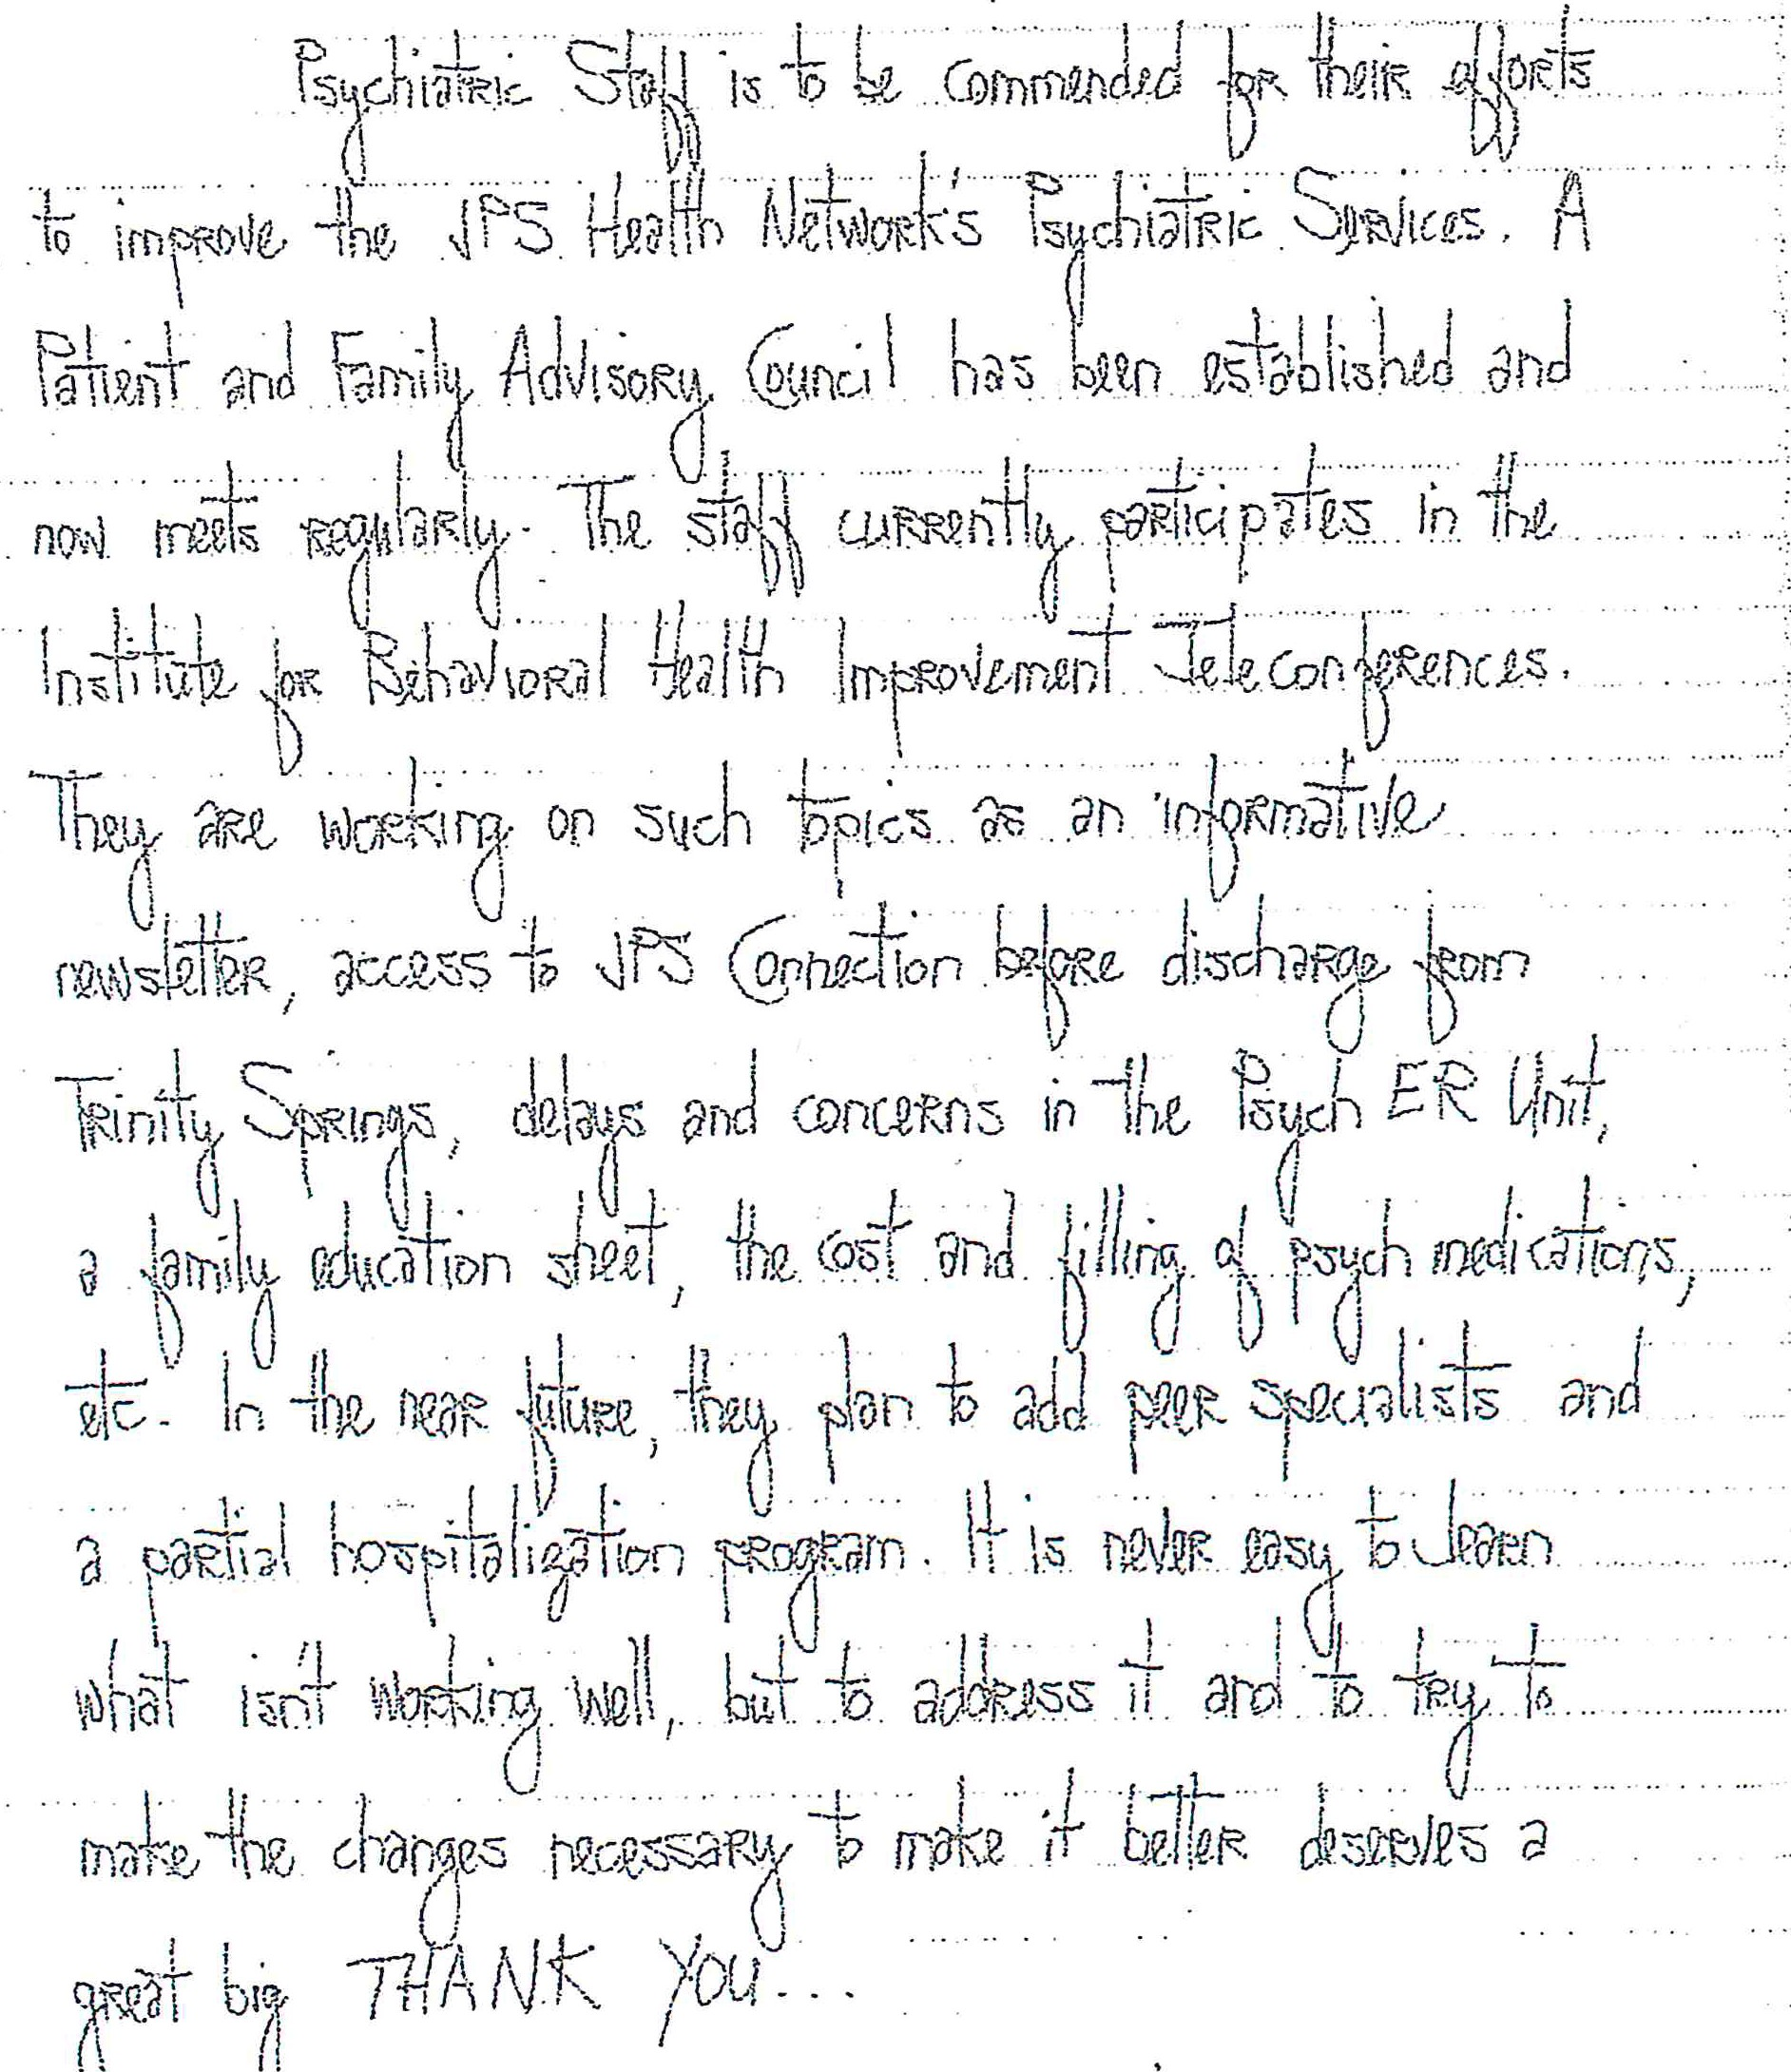 Psychiatric Staff is to be commended for their efforts
to improve the JPS Health Network's Psychiatric Services. A
Patient and Family Advisory Council has been established and
now meets regularly. The staff currently participates in the
Institute for Behavioral Health Improvement Teleconferences.
They are working on such topics as an informative
newsletter, access to JPS Connection before discharge from
Trinity Springs, delays and concerns in the Psych ER Unit,
a family education sheet, the cost and filling of psych medications,
etc. In the near future, they plan to add peer specialists and
a partial hospitalization program. It is never easy to learn
what isn't working well, but to address it and to try to
make the changes necessary to make it better deserves a
great big THANK YOU...